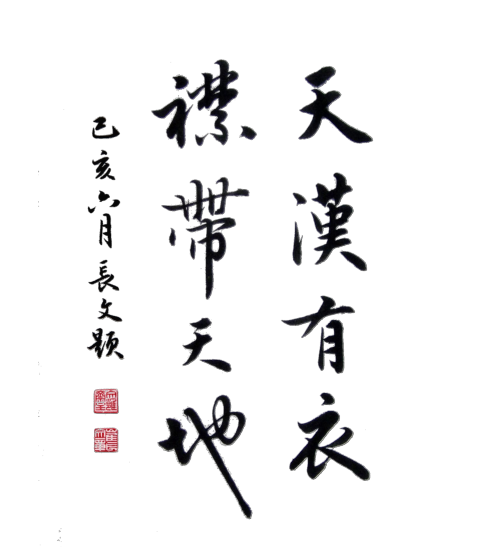 天漢有衣
襟帶天地
己亥六月長文題